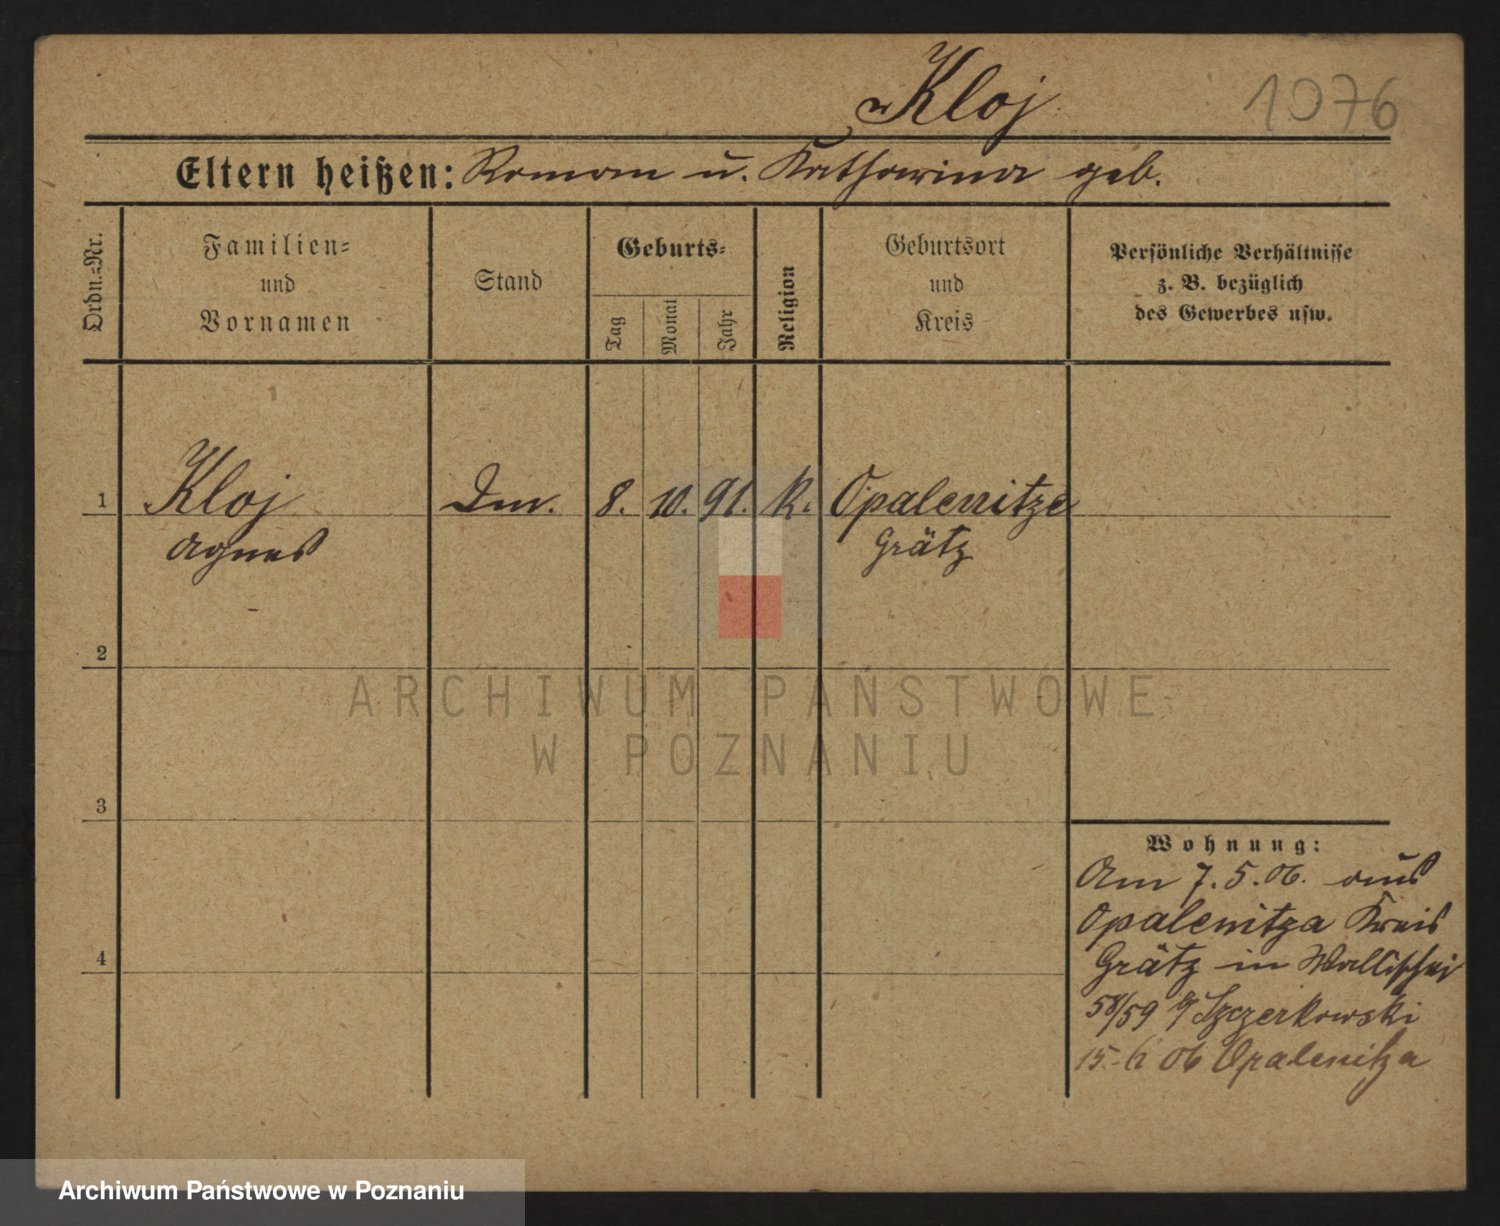 Kloj
1076
Eltern heißen: Roman u. Katharina geb.
Ordn.-Nr.
Familien-
und
Vornamen
Stand
Geburts-
Tag
Monat
Jahr
Religion
Geburtsort
und
Kreis
Persönliche Verhältnisse
z. B. bezüglich
des Gewerbes usw.
1 Kloj 8. 10. 91. k. Opalenitze
Agnes Grätz
2
3
4
ARCHIWUM PAŃSTWOWE
W POZNANIU
Wohnung:
Am 7.5.06. aus
Opalenitza Kreis
Grätz in Wallischei
58/59 Szczerkowski
15-6 06 Opalenitza
Archiwum Państwowe w Poznaniu